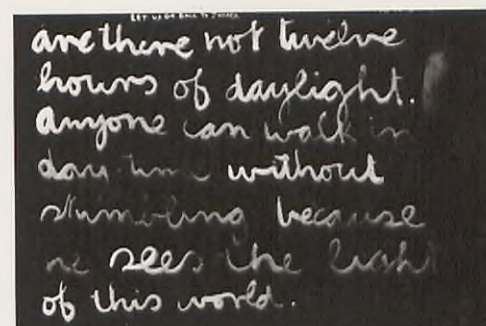 LET US GO BACK TO JUDAEA
are there not twelve
hours of daylight.
anyone can walk in
day time without
stumbling because
he sees the light
of this world.